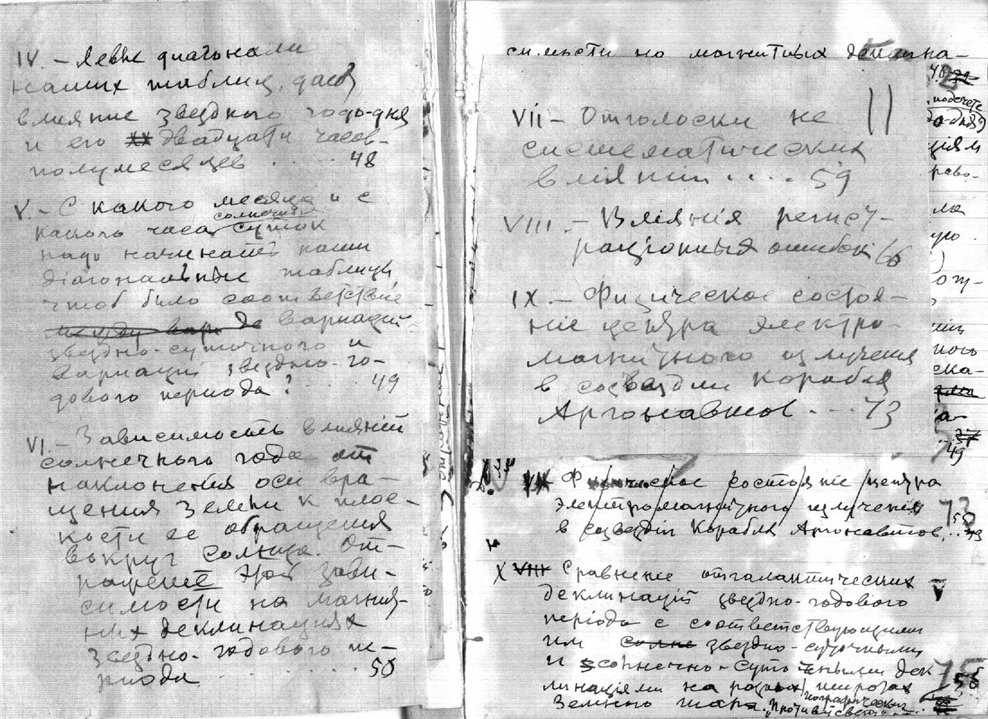 IV – Левые диагонали
наших таблиц, даю
влияние звездного годо-дня
и его двадцати часов-
полумесяцев ..... 48
V. – С какого месяца и с
какого часа солнечных суток
надо начинать наши
діагональные таблицы
чтоб было соответствие
между вариаций
звездно-суточного и
вариаций звездно-го-
дового периода? .. 49
VI. – Зависимость влияний
солнечного года от
наклонения оси вра-
щения Земли к плос-
кости ее обращения
вокруг Солнца. От-
ражение этой зави-
симости на магнит-
ных деклинациях
звездно-годового пе-
риода ..... 50
симости на магнитных деклина-
VII – Отголоски не
систематических
влияний .... 59
VIII. – Вліянія регист-
раціонных ошибок 66
IX. – Физическое состоя-
ніе центра электро-
магнитного излучения
в созвездии Корабля
Аргонавтов ... 73
Физическое состояніе центра
электромагнитного излучения
в созвездіи Корабля Аргонавтов ... 73
X VIII Сравнение отгалактических
деклинацій звездно-годового
періода с соответствующими
им звездно-суточными
и солнечно-суточными дек
линаціями на разных географических широтах
Земного шара. "Противусвет"... 75